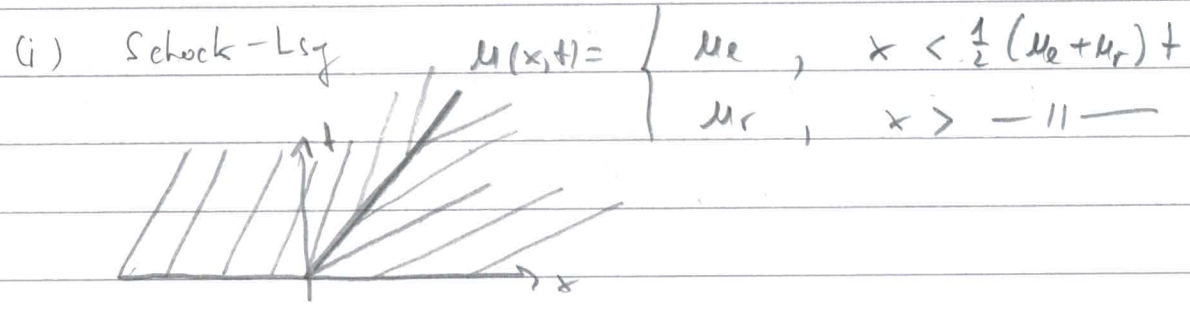 (i) Schock-Lsg u(x,t) = { u_l , x < 1/2 (u_l + u_r) t
u_r , x > —〃—
t
x